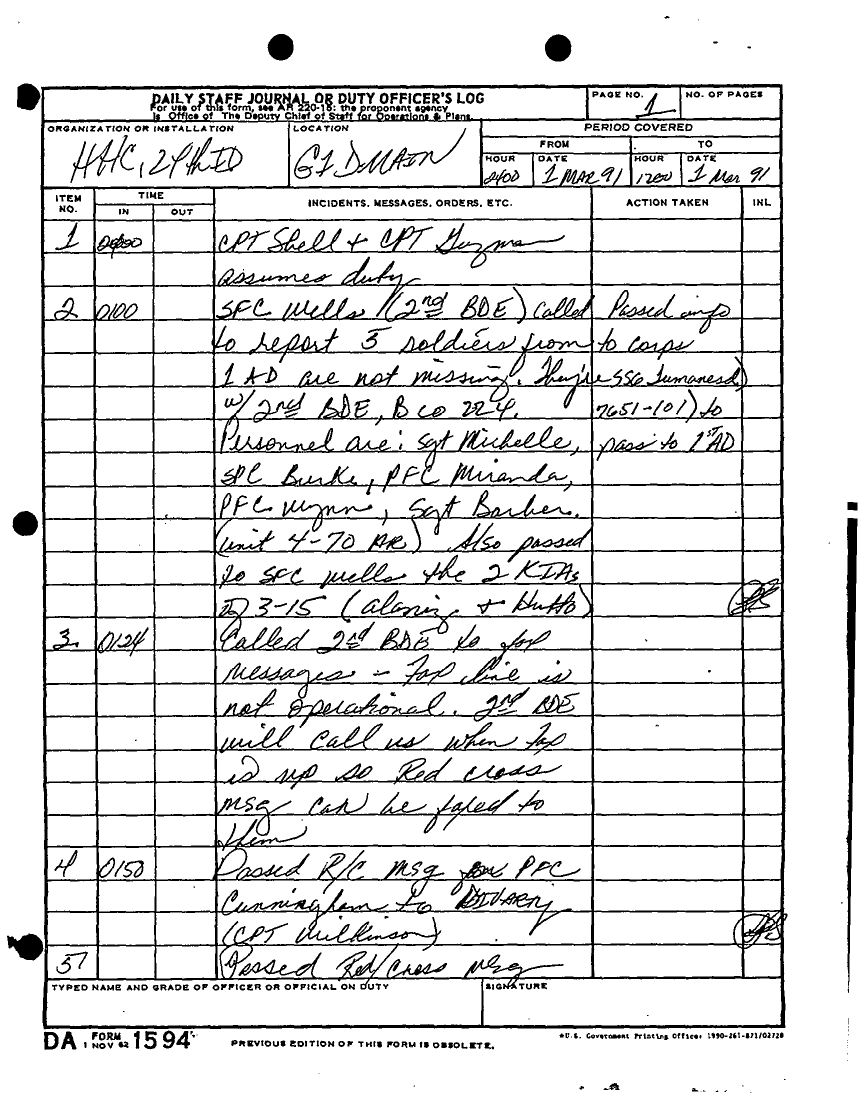 DAILY STAFF JOURNAL OR DUTY OFFICER'S LOG
For use of this form, see AR 220-15: the proponent agency
is Office of The Deputy Chief of Staff for Operations & Plans.
PAGE NO. 1
NO. OF PAGES
ORGANIZATION OR INSTALLATION
HHC, 24th ID
LOCATION
G1 DMAIN
PERIOD COVERED
FROM TO
HOUR DATE HOUR DATE
2400 1 MAR 91 1200 1 Mar 91
ITEM NO. TIME IN OUT INCIDENTS, MESSAGES, ORDERS, ETC. ACTION TAKEN INL
1 CPT Shell + CPT Guzman
assumes duty
2 0100 SFC Wells (2nd BDE) Called Passed info
to report 5 soldiers from to corps
1 AD are not missing. They're SSG
w/ 2nd BDE, B co 224. 7651-101) to
Personnel are: Sgt Michelle, pass to 1st AD
SPC Burke, PFC Miranda,
PFC Wynn, Sgt Barber.
(unit 4-70 AR) Also passed
to SFC Wells the 2 KIAs
of 3-15 (Alaniz + Hutto)
3. 0124 Called 2nd BDE to fax
messages - Fax line is
not operational. 2nd BDE
will call us when fax
is up so Red cross
msg can be faxed to
them
4 0150 Passed R/C msg PFC
Cunningham to DIVARTY
(CPT Wilkinson)
5 Passed Red/Cross msg
TYPED NAME AND GRADE OF OFFICER OR OFFICIAL ON DUTY
SIGNATURE
DA FORM 1594
1 NOV 62
PREVIOUS EDITION OF THIS FORM IS OBSOLETE.
*U.S. Government Printing Office: 1990-261-871/02728